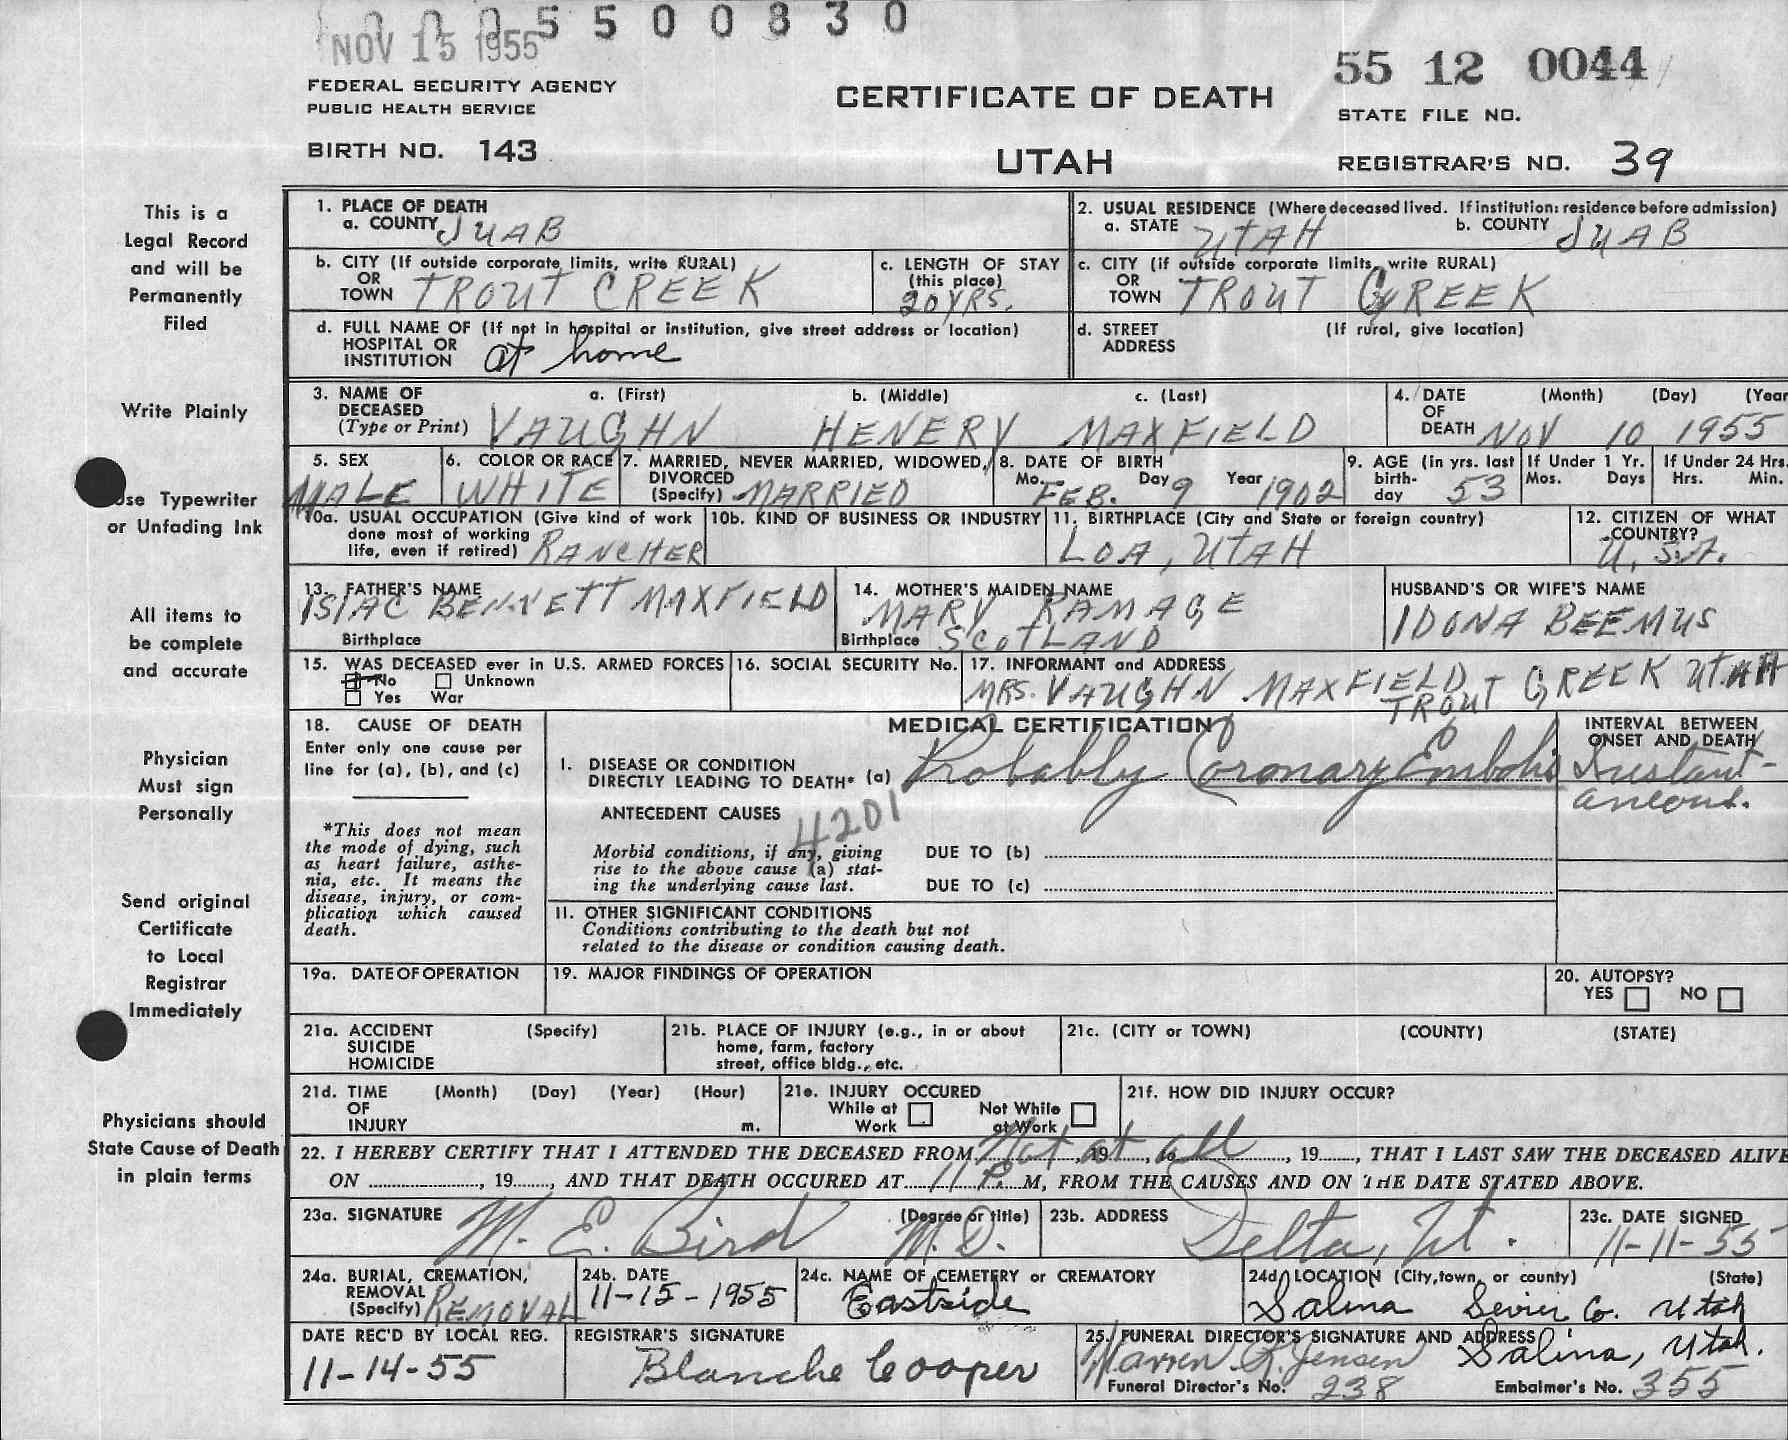 5500830
NOV 15 1955
55 12 0044
FEDERAL SECURITY AGENCY
PUBLIC HEALTH SERVICE
CERTIFICATE OF DEATH
STATE FILE NO.
BIRTH NO. 143
UTAH
REGISTRAR'S NO. 39
This is a
Legal Record
and will be
Permanently
Filed
Write Plainly
Use Typewriter
or Unfading Ink
All items to
be complete
and accurate
Physician
Must sign
Personally
Send original
Certificate
to Local
Registrar
Immediately
Physicians should
State Cause of Death
in plain terms
1. PLACE OF DEATH
a. COUNTY JUAB
2. USUAL RESIDENCE (Where deceased lived. If institution: residence before admission)
a. STATE UTAH b. COUNTY JUAB
b. CITY (If outside corporate limits, write RURAL)
OR
TOWN TROUT CREEK
c. LENGTH OF STAY
(this place)
20 YRS.
c. CITY (if outside corporate limits, write RURAL)
OR
TOWN TROUT CREEK
d. FULL NAME OF (If not in hospital or institution, give street address or location)
HOSPITAL OR
INSTITUTION at home
d. STREET (If rural, give location)
ADDRESS
3. NAME OF a. (First) b. (Middle) c. (Last)
DECEASED
(Type or Print) VAUGHN HENERY MAXFIELD
4. DATE (Month) (Day) (Year
OF
DEATH NOV 10 1955
5. SEX
MALE
6. COLOR OR RACE
WHITE
7. MARRIED, NEVER MARRIED, WIDOWED,
DIVORCED
(Specify) MARRIED
8. DATE OF BIRTH
Mo. FEB. Day 9 Year 1902
9. AGE (in yrs. last
birth-
day 53
If Under 1 Yr.
Mos. Days
If Under 24 Hrs.
Hrs. Min.
10a. USUAL OCCUPATION (Give kind of work
done most of working
life, even if retired) RANCHER
10b. KIND OF BUSINESS OR INDUSTRY
11. BIRTHPLACE (City and State or foreign country)
LOA, UTAH
12. CITIZEN OF WHAT
COUNTRY?
U.S.A.
13. FATHER'S NAME
ISIAC BENNETT MAXFIELD
Birthplace
14. MOTHER'S MAIDEN NAME
MARY RAMAGE
Birthplace SCOTLAND
HUSBAND'S OR WIFE'S NAME
IDONA BEEMUS
15. WAS DECEASED ever in U.S. ARMED FORCES
No Unknown
Yes War
16. SOCIAL SECURITY No.
17. INFORMANT and ADDRESS
MRS. VAUGHN MAXFIELD TROUT CREEK UTAH
18. CAUSE OF DEATH
Enter only one cause per
line for (a), (b), and (c)
*This does not mean
the mode of dying, such
as heart failure, asthe-
nia, etc. It means the
disease, injury, or com-
plication which caused
death.
MEDICAL CERTIFICATION
I. DISEASE OR CONDITION
DIRECTLY LEADING TO DEATH* (a) Probably Coronary Embolis
INTERVAL BETWEEN
ONSET AND DEATH
Instant-
aneous.
ANTECEDENT CAUSES
4201
Morbid conditions, if any, giving
rise to the above cause (a) stat-
ing the underlying cause last.
DUE TO (b)
DUE TO (c)
II. OTHER SIGNIFICANT CONDITIONS
Conditions contributing to the death but not
related to the disease or condition causing death.
19a. DATE OF OPERATION
19. MAJOR FINDINGS OF OPERATION
20. AUTOPSY?
YES NO
21a. ACCIDENT (Specify)
SUICIDE
HOMICIDE
21b. PLACE OF INJURY (e.g., in or about
home, farm, factory
street, office bldg., etc.
21c. (CITY or TOWN) (COUNTY) (STATE)
21d. TIME (Month) (Day) (Year) (Hour)
OF
INJURY m.
21e. INJURY OCCURED
While at Work
Not While at Work
21f. HOW DID INJURY OCCUR?
22. I HEREBY CERTIFY THAT I ATTENDED THE DECEASED FROM Not at all, 19, to, 19, THAT I LAST SAW THE DECEASED ALIVE
ON, 19, AND THAT DEATH OCCURED AT 11 P. M, FROM THE CAUSES AND ON THE DATE STATED ABOVE.
23a. SIGNATURE (Degree or title)
M. E. Bird M.D.
23b. ADDRESS
Delta, Ut.
23c. DATE SIGNED
11-11-55
24a. BURIAL, CREMATION,
REMOVAL
(Specify) REMOVAL
24b. DATE
11-15-1955
24c. NAME OF CEMETERY or CREMATORY
Eastside
24d. LOCATION (City, town, or county) (State)
Salina Sevier Co. Utah
DATE REC'D BY LOCAL REG.
11-14-55
REGISTRAR'S SIGNATURE
Blanche Cooper
25. FUNERAL DIRECTOR'S SIGNATURE AND ADDRESS
Warren R. Jensen Salina, Utah.
Funeral Director's No. 238 Embalmer's No. 355